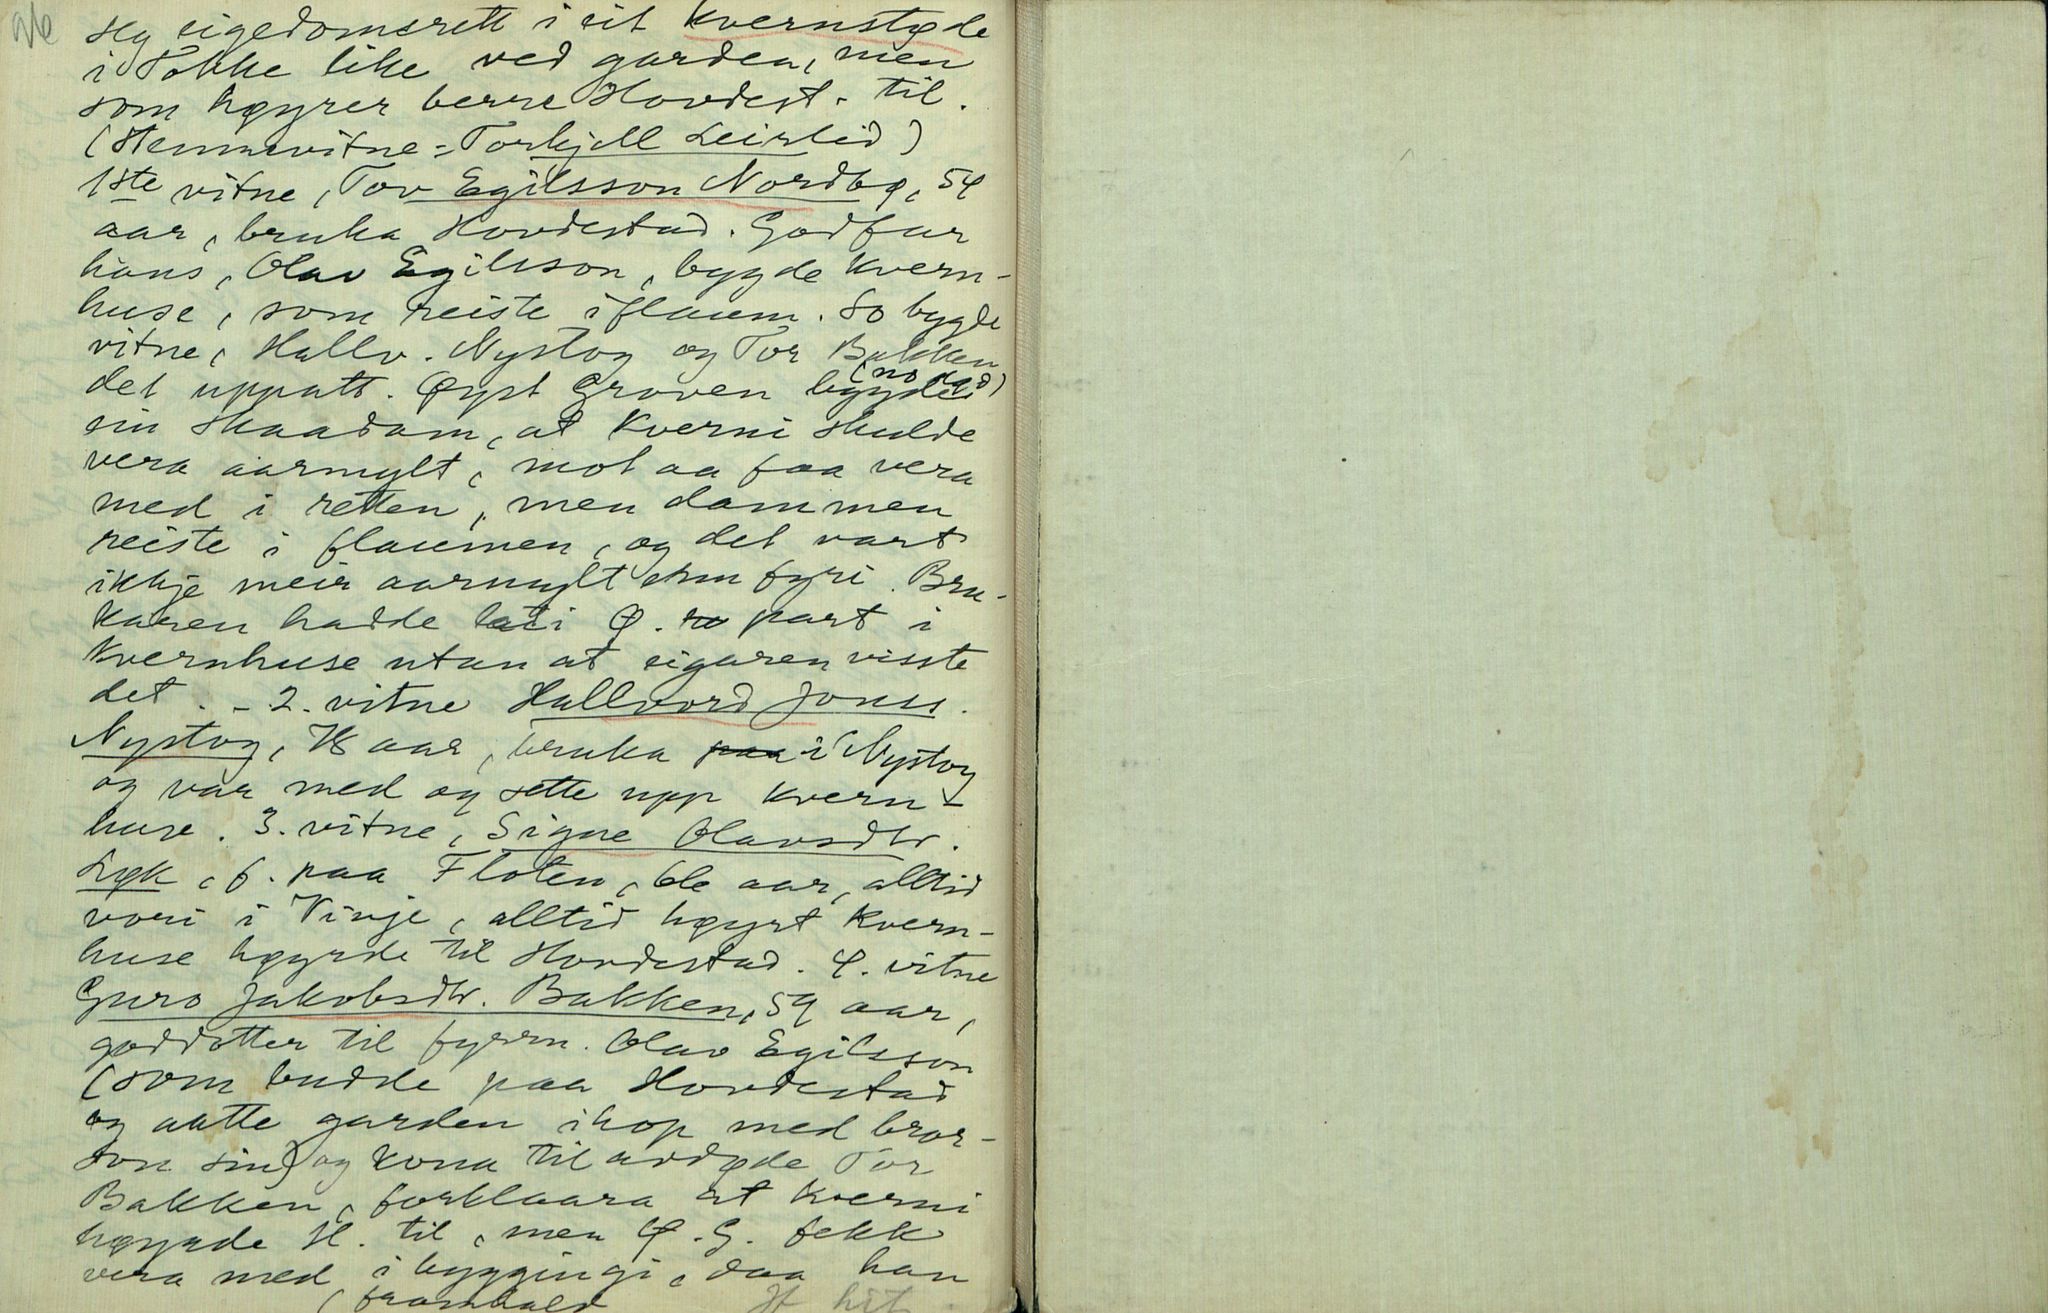 seg eigedomsrett i eit kvernstøde
i Tokke like ved garden, men
som høyrer berre Hovdest. til.
(Stemnevitne: Torkjell Leirlid)
1ste vitne, Tov Egilsson Nordbø, 54
aar, bruka Hovdestad. Godfar
hans, Olav Egilsson, bygde kvern-
huse, som reiste i flaum. So bygde
vitne, Hallv. Nystog og Tor Bakken
(no død)
det uppatt. Øyst Groven bygde
ein Skaadam, at kverni skulde
vera aarmylt, mot aa faa vera
med i retten, men dammen
reiste i flaumen, og det vart
ikkje meir aarmylt enn fyri. Bru-
karen hadde lati Ø. part i
kvernhuse utan at eigaren visste
det. - 2. vitne Hallvord Jonss.
Nystog, aar, bruka paa i Nystog
og var med og sette upp kvern-
huse. 3. vitne, Signe Olavsdtr.
Løk, f. paa Floten, aar, alltid
vori i Vinje, alltid høyrt kvern-
huse høyrde til Hovdestad. 4. vitne
Guro Jakobsdtr. Bakken, 54 aar,
goddotter til fyrrn. Olav Egilsson
(som budde paa Hovdestad
og aatte garden ihop med bror-
son sin) og kona til avdøde Tor
Bakken, forklaara at kverni
høyrde H. til, men Ø. G. fekk
vera med i byggingi, daa han
(framhald